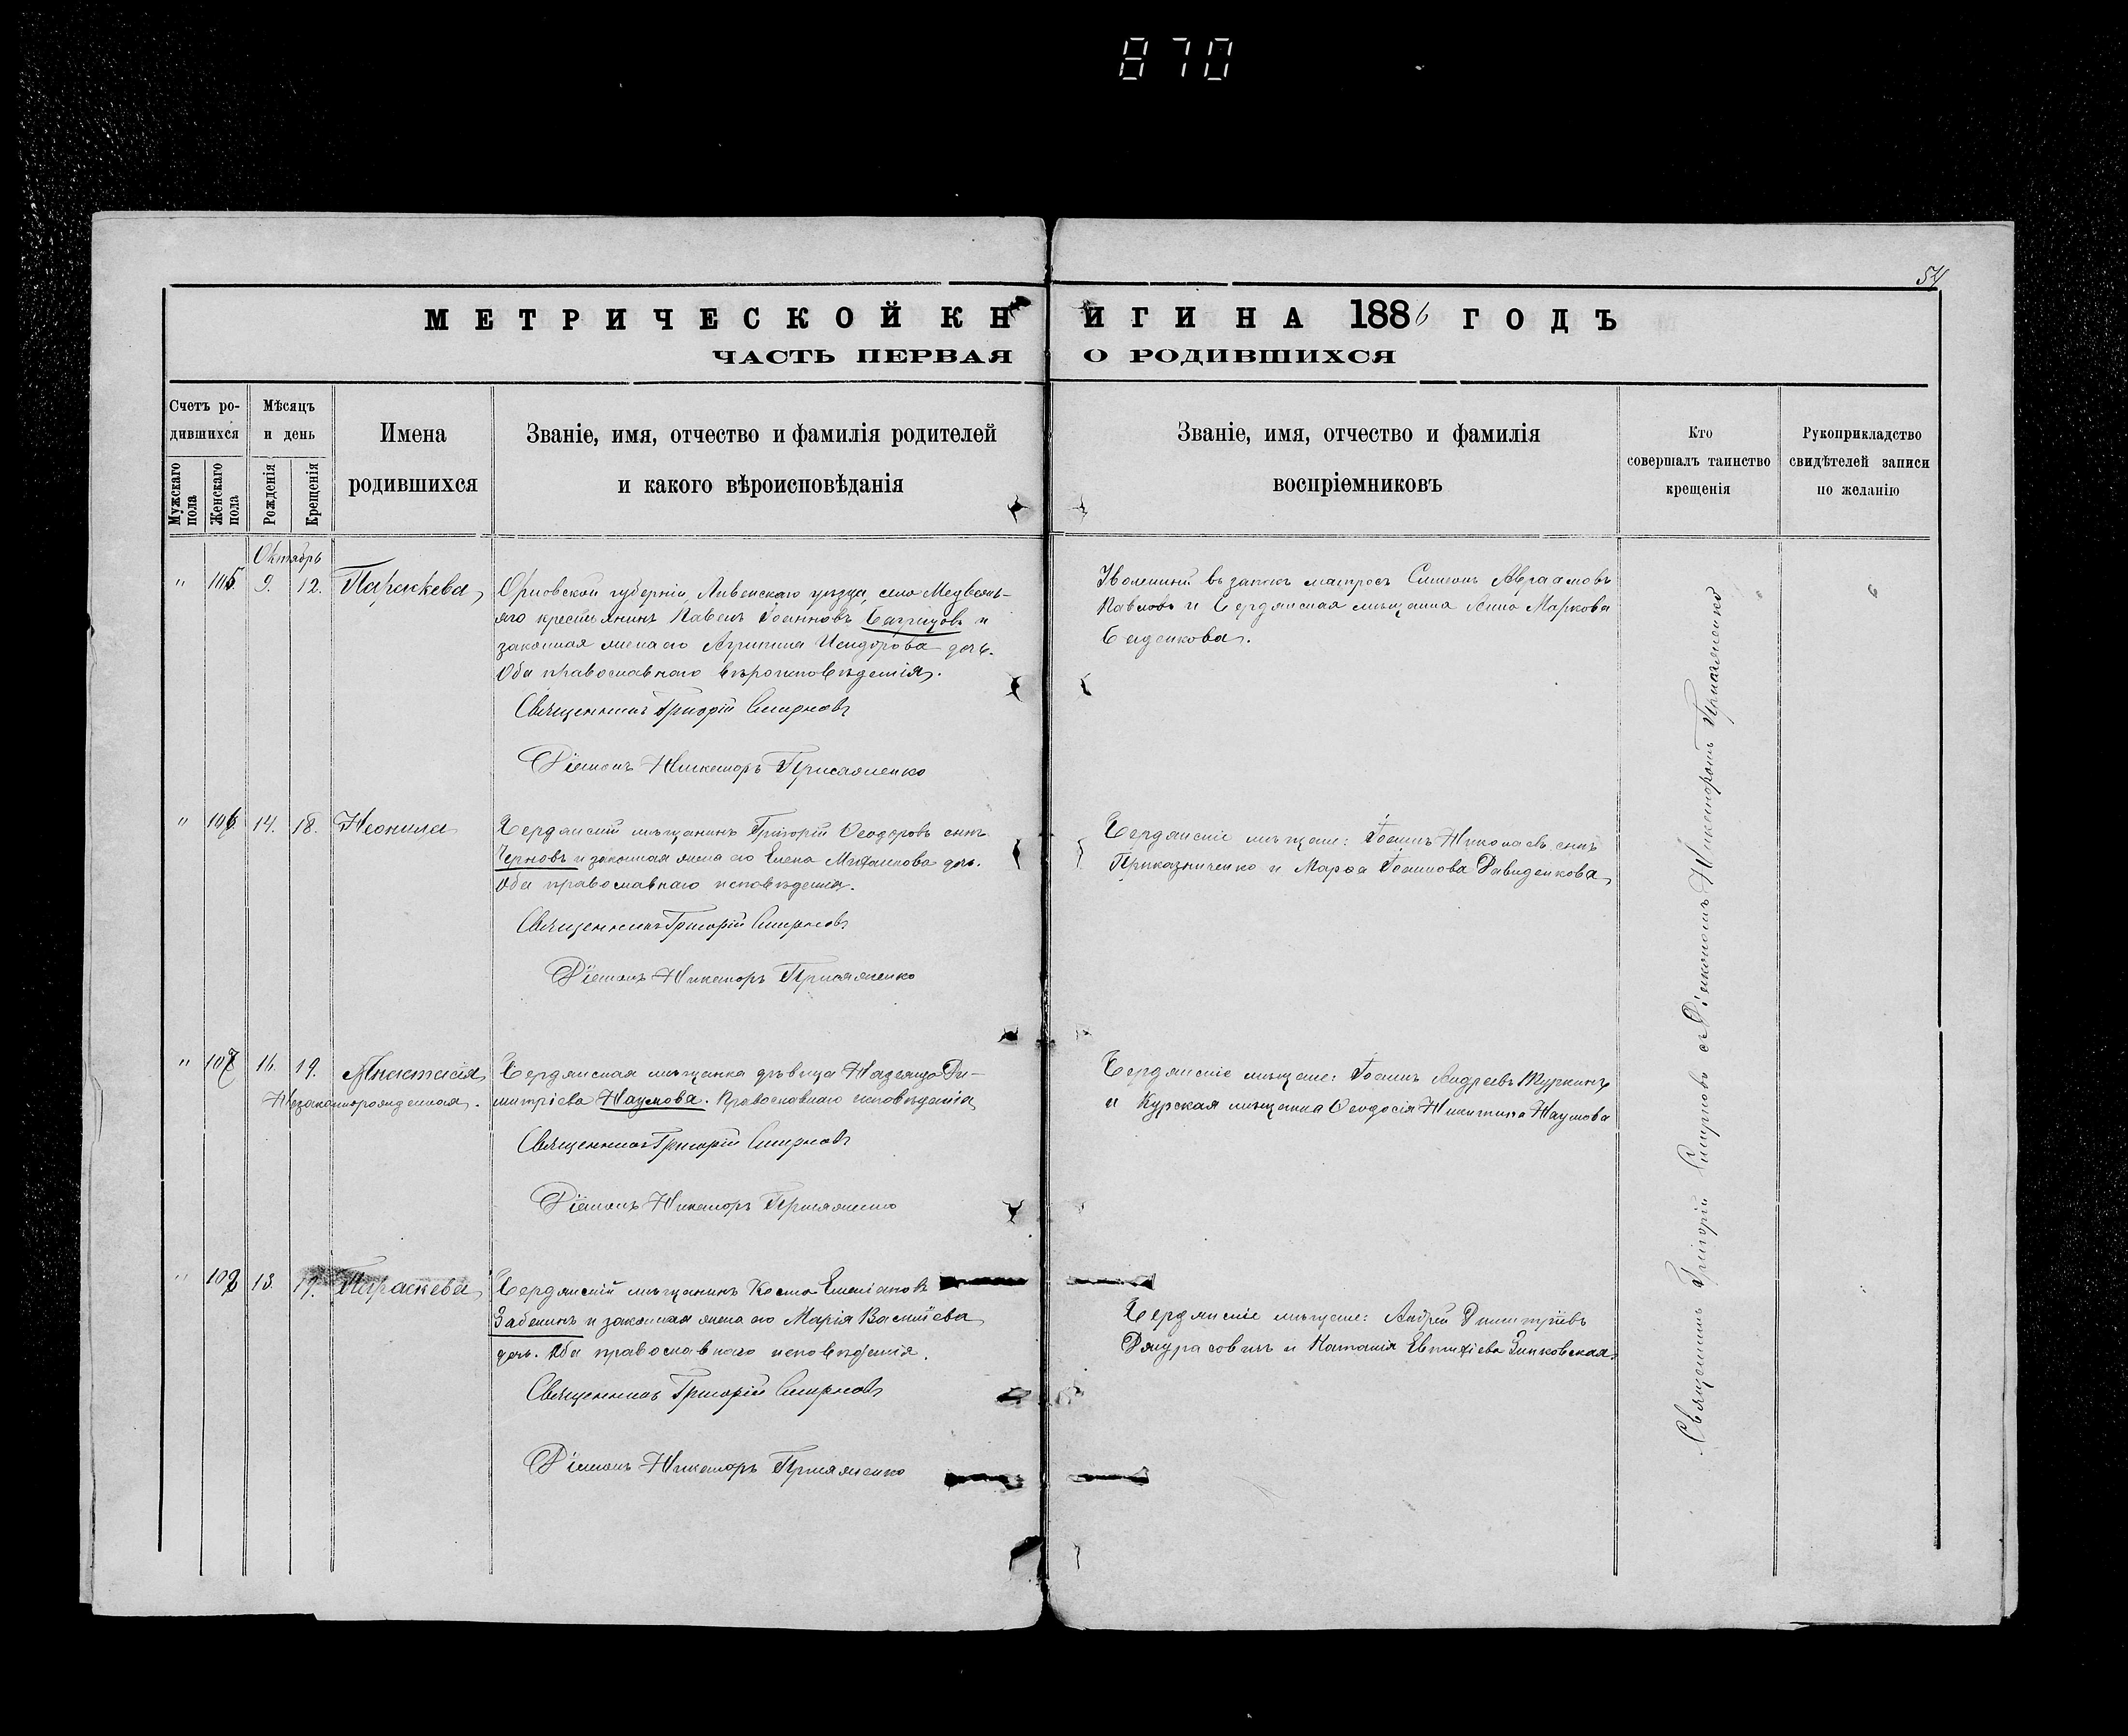 870
54
МЕТРИЧЕСКОЙ КНИГИ НА 1886 ГОДЪ
ЧАСТЬ ПЕРВАЯ О РОДИВШИХСЯ
Счетъ родившихся
Мужскаго пола
Женскаго пола
Мѣсяцъ и день
Рожденія
Крещенія
Имена родившихся
Званіе, имя, отчество и фамилія родителей
и какого вѣроисповѣданія
Званіе, имя, отчество и фамилія
воспріемниковъ
Кто
совершалъ таинство
крещенія
Рукоприкладство
свидѣтелей записи
по желанію
Октябрь
" 105 9. 12. Параскева
Орловской губерніи, Ливенскаго уѣзда, села Медвежь-
яго крестьянинъ Павелъ Іоанновъ и
законная жена его Агрипина Исидорова дочь.
Оба православнаго вѣроисповѣданія.
Священникъ Григорій Смирновъ
Діаконъ Никаноръ Присяженко
Уволенный въ запасъ матросъ Симеонъ Авраамовъ
Павловъ и Бердянская мѣщанка Анна Маркова
106 14. 18. Неонила
Бердянскій мѣщанинъ Григорій Ѳеодоровъ сынъ
Черновъ и законная жена его Елена Михаилова дочь.
Оба православнаго исповѣданія.
Священникъ Григорій Смирновъ
Діаконъ Никаноръ Присяженко
Бердянскіе мѣщане: Іоаннъ Николаевъ сынъ
Приказниченко и Марѳа Іоаннова Давиденкова
" 107 16. 19. Анастасія
Незаконнорожденная.
Бердянская мѣщанка дѣвица Надежда Ди-
митріева Наумова. Православнаго исповѣданія
Священникъ Григорій Смирновъ
Діаконъ Никаноръ Присяженко
Бердянскіе мѣщане: Іоаннъ Андреевъ
и Курская мѣщанка Ѳеодосія Никитина Наумова
" 108 13. 19. Параскева
Бердянскій мѣщанинъ Косма Емеліановъ
Забелинъ и законная жена его Марія Василіева
дочь. Оба православнаго исповѣданія.
Священникъ Григорій Смирновъ
Діаконъ Никаноръ Присяженко
Бердянскіе мѣщане: Андрей Димитріевъ
и Наталія Евтихіева Зинковская.
Священникъ Григорій Смирновъ съ Діакономъ Никаноромъ Присяженко